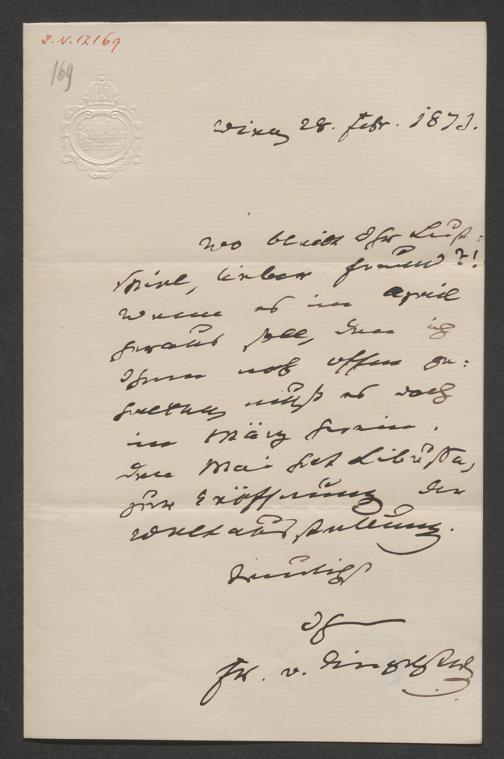 I. N. 12169
169
Wien, 28. Febr. 1873.
Wo bleibt Ihr Lust=
spiel, lieber Freund?!
Wenn es im April
heraus soll, den ich
Ihnen noch offen ge=
halten, muß es doch
im März herein.
Den Mai hat Libussa,
zur Eröffnung der
Weltausstellung.
Freundlichst
Ihr
Fr. v. Dingelstedt